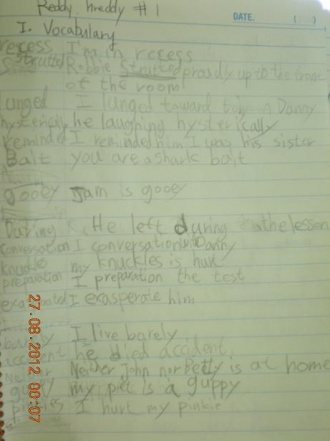 Reddy, hreddy # 1
DATE. ( )
I. Vocabulary
recess I'm in recess
strutted Robbie strutted proudly up to the front
of the room
lunged I lunged toward Danny
hysterically he laughing hysterically
reminded I reminded him I was his sister
Bait you are a shark bait
Gooey Jam is gooey
During He left during the lesson
Conversation I conversation Danny
knuckle my knuckles is hurt
preparation I preparation the test
I exasperate him.
barely I live barely
accident he died accident.
Neither John nor betty is at home
guppy my pet is a guppy
pinkies I hurt my pinkie
27.08.2012 00:07